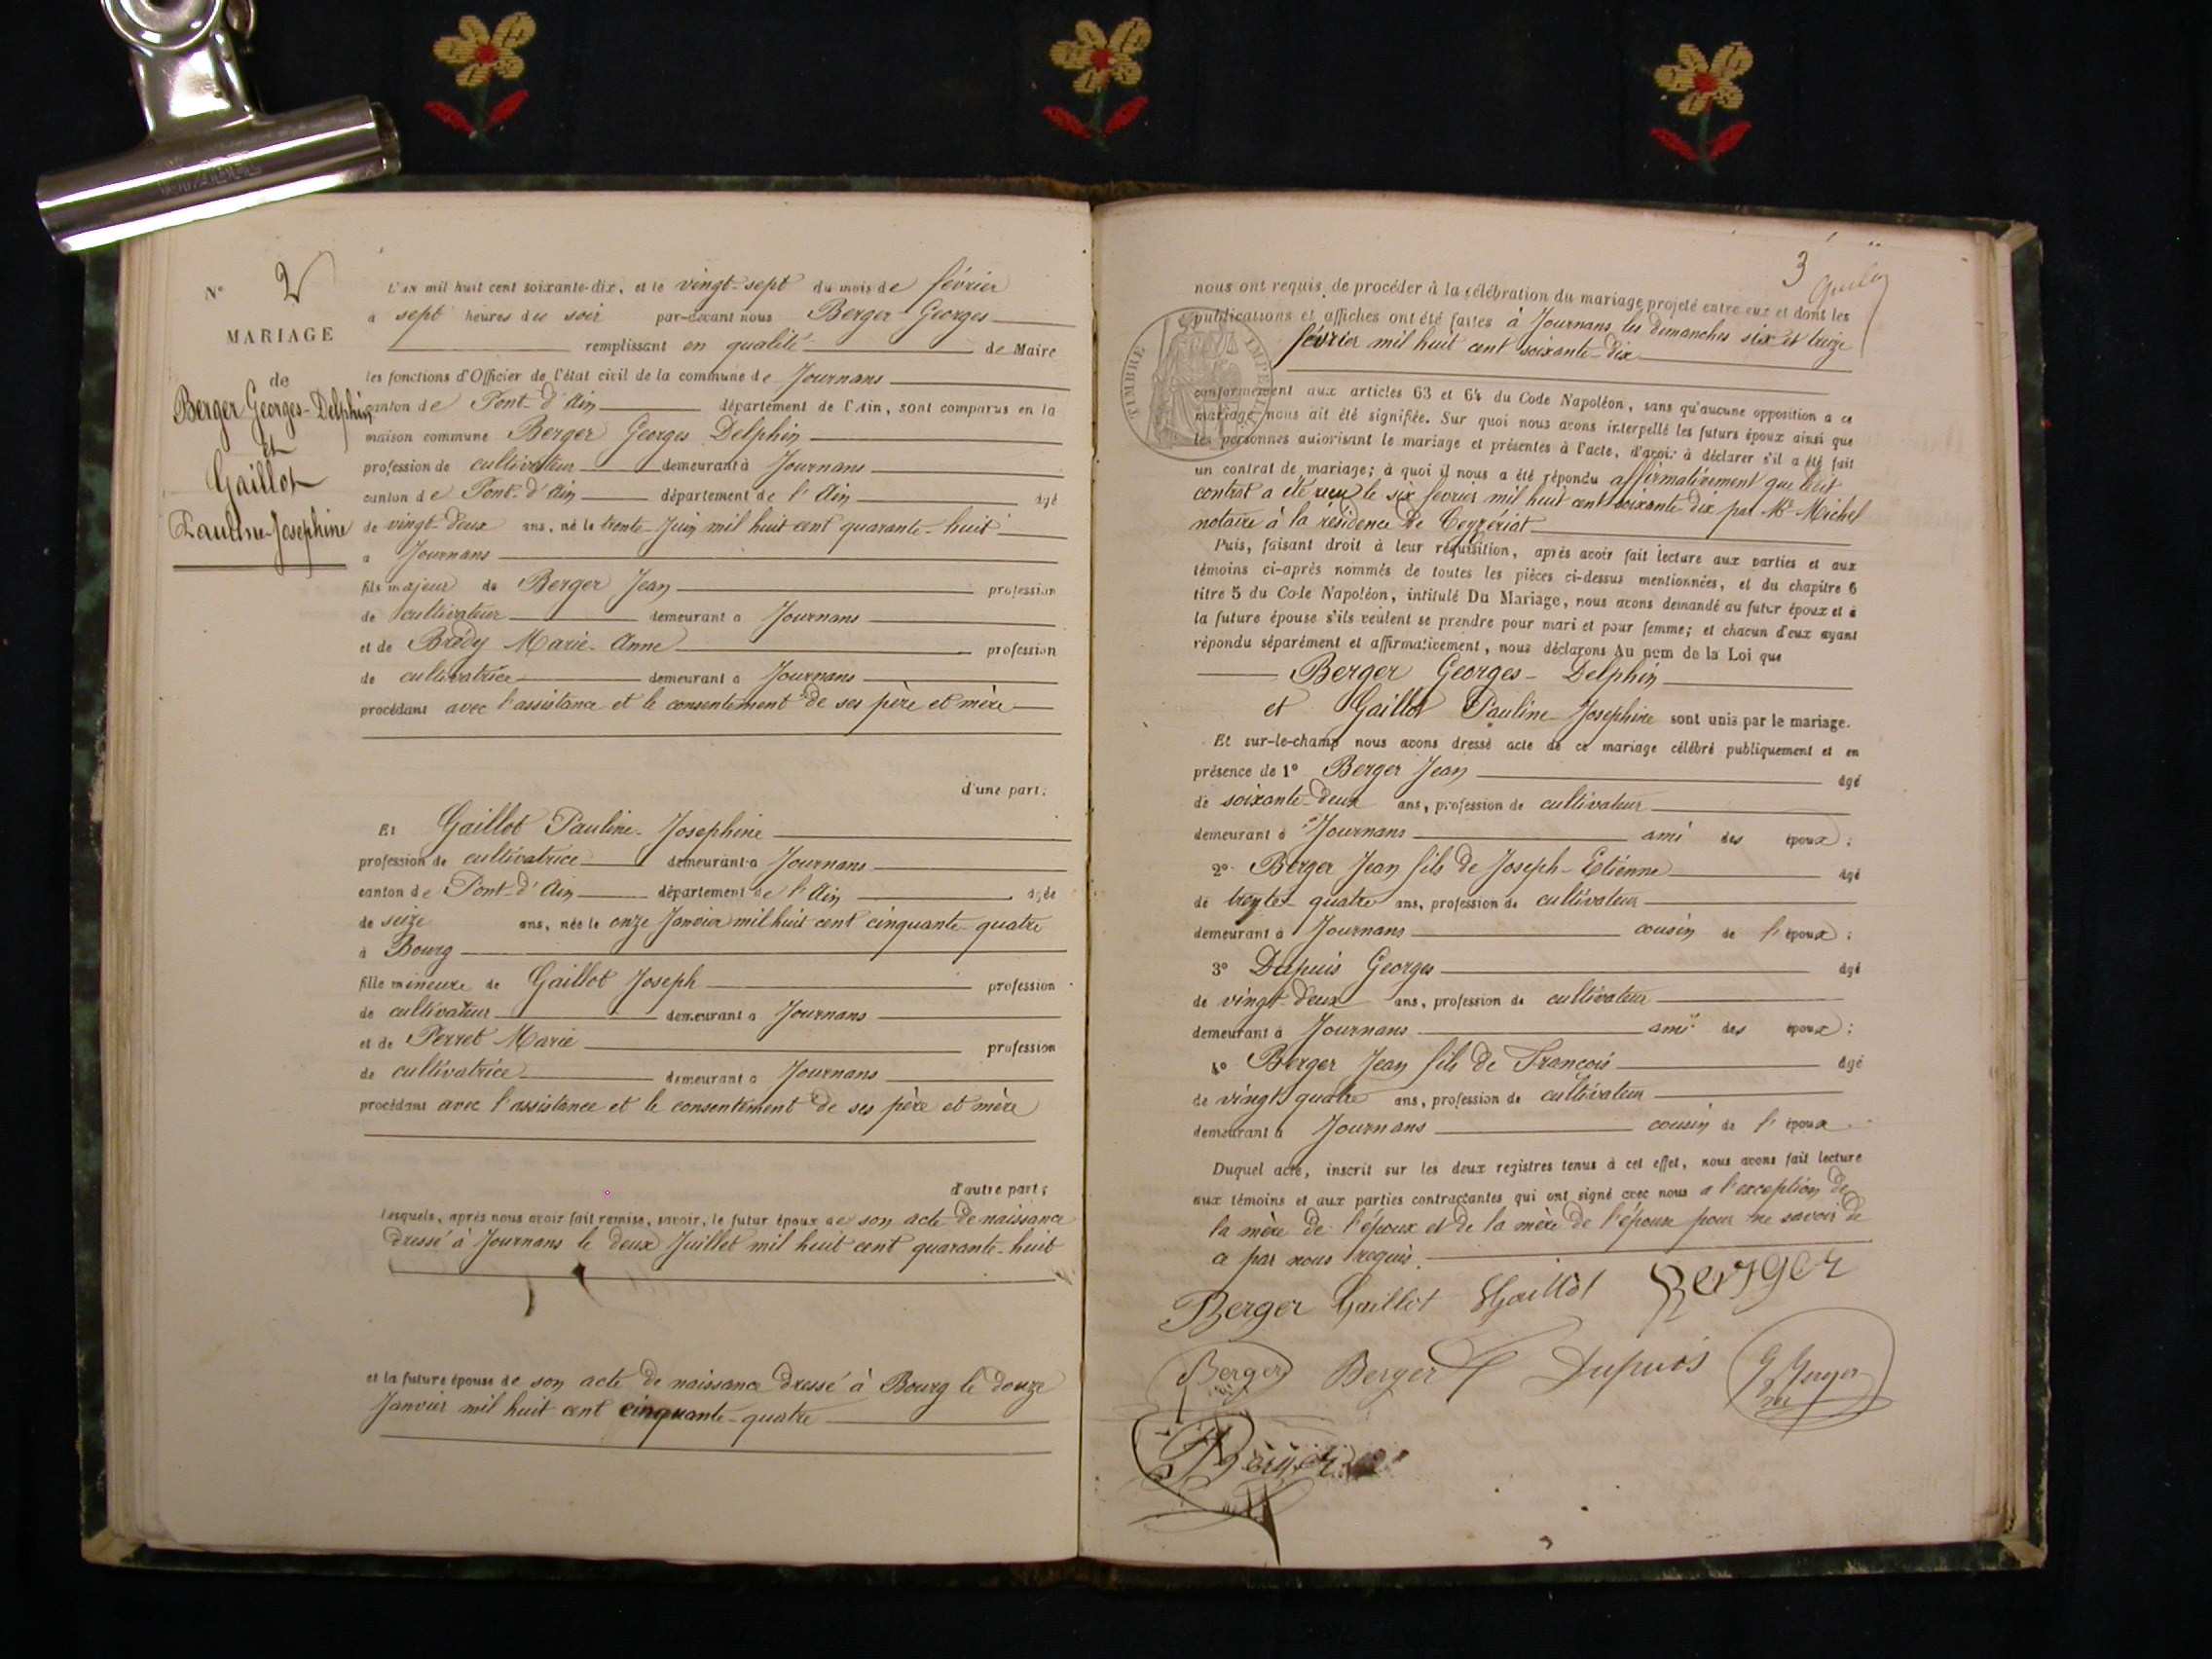 N° 2
MARIAGE
de
Berger Georges-Delphin
et
Gaillot
Pauline-Josephine
L'an mil huit cent soixante-dix, et le vingt-sept du mois de février
a sept heures du soir par-devant nous Berger Georges
remplissant en qualité de Maire
les fonctions d'Officier de l'état civil de la commune de Journans
canton de Pont-d'Ain département de l'Ain, sont comparus en la
maison commune Berger Georges Delphin
profession de cultivateur demeurant à Journans
canton de Pont-d'Ain département de l'Ain âgé
de vingt-deux ans, né le trente Juin mil huit cent quarante-huit
a Journans
fils majeur de Berger Jean profession
de cultivateur demeurant a Journans
et de Brédy Marie-Anne profession
de cultivatrice demeurant a Journans
procédant avec l'assistance et le consentement de ses père et mère
d'une part;
Et Gaillot Pauline-Josephine
profession de cultivatrice demeurant a Journans
canton de Pont-d'Ain département de l'Ain âgée
de seize ans, née le onze Janvier mil huit cent cinquante-quatre
à Bourg
fille mineure de Gaillot Joseph profession
de cultivateur demeurant a Journans
et de Perret Marie profession
de cultivatrice demeurant a Journans
procédant avec l'assistance et le consentement de ses père et mère
d'autre part;
Lesquels, après nous avoir fait remise, savoir, le futur époux de son acte de naissance
dressé à Journans le deux Juillet mil huit cent quarante-huit
et la future épouse de son acte de naissance dressé à Bourg le douze
Janvier mil huit cent cinquante-quatre
3
nous ont requis de procéder à la célébration du mariage projeté entre eux et dont les
publications et affiches ont été faites à Journans les dimanches six et treize
février mil huit cent soixante-dix
TIMBRE IMPÉRIAL
conformément aux articles 63 et 64 du Code Napoléon, sans qu'aucune opposition a ce
mariage nous ait été signifiée. Sur quoi nous avons interpellé les futurs époux ainsi que
les personnes autorisant le mariage et présentes à l'acte, d'avoir à déclarer s'il a été fait
un contrat de mariage; à quoi il nous a été répondu affirmativement que ledit
contrat a été reçu le six février mil huit cent soixante-dix par Me Michel
notaire à la résidence de Ceyzériat
Puis, faisant droit à leur réquisition, après avoir fait lecture aux parties et aux
témoins ci-après nommés de toutes les pièces ci-dessus mentionnées, et du chapitre 6
titre 5 du Code Napoléon, intitulé Du Mariage, nous avons demandé au futur époux et à
la future épouse s'ils veulent se prendre pour mari et pour femme; et chacun d'eux ayant
répondu séparément et affirmativement, nous déclarons Au nom de la Loi que
Berger Georges-Delphin
et Gaillot Pauline-Josephine sont unis par le mariage.
Et sur-le-champ nous avons dressé acte de ce mariage célébré publiquement et en
présence de 1° Berger Jean âgé
de soixante-deux ans, profession de cultivateur
demeurant à Journans ami des époux;
2° Berger Jean fils de Joseph-Etienne âgé
de trente-quatre ans, profession de cultivateur
demeurant à Journans cousin de l'époux;
3° Dupuis Georges âgé
de vingt-deux ans, profession de cultivateur
demeurant à Journans ami des époux;
4° Berger Jean fils de François âgé
de vingt quatre ans, profession de cultivateur
demeurant à Journans cousin de l'époux
Duquel acte, inscrit sur les deux registres tenus à cet effet, nous avons fait lecture
aux témoins et aux parties contractantes qui ont signé avec nous a l'exception de
la mère de l'époux et de la mère de l'épouse pour ne savoir de
ce par nous requis.
Berger Gaillot Gaillot Berger
Berger Berger Dupuis G Berger
Berger